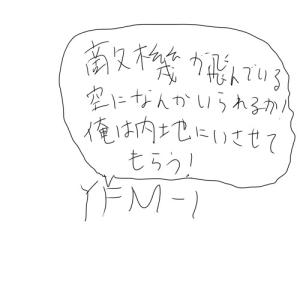 敵機が飛んでいる
空になんかいられるか!
俺は内地にいさせて
もらう!
YFM-1